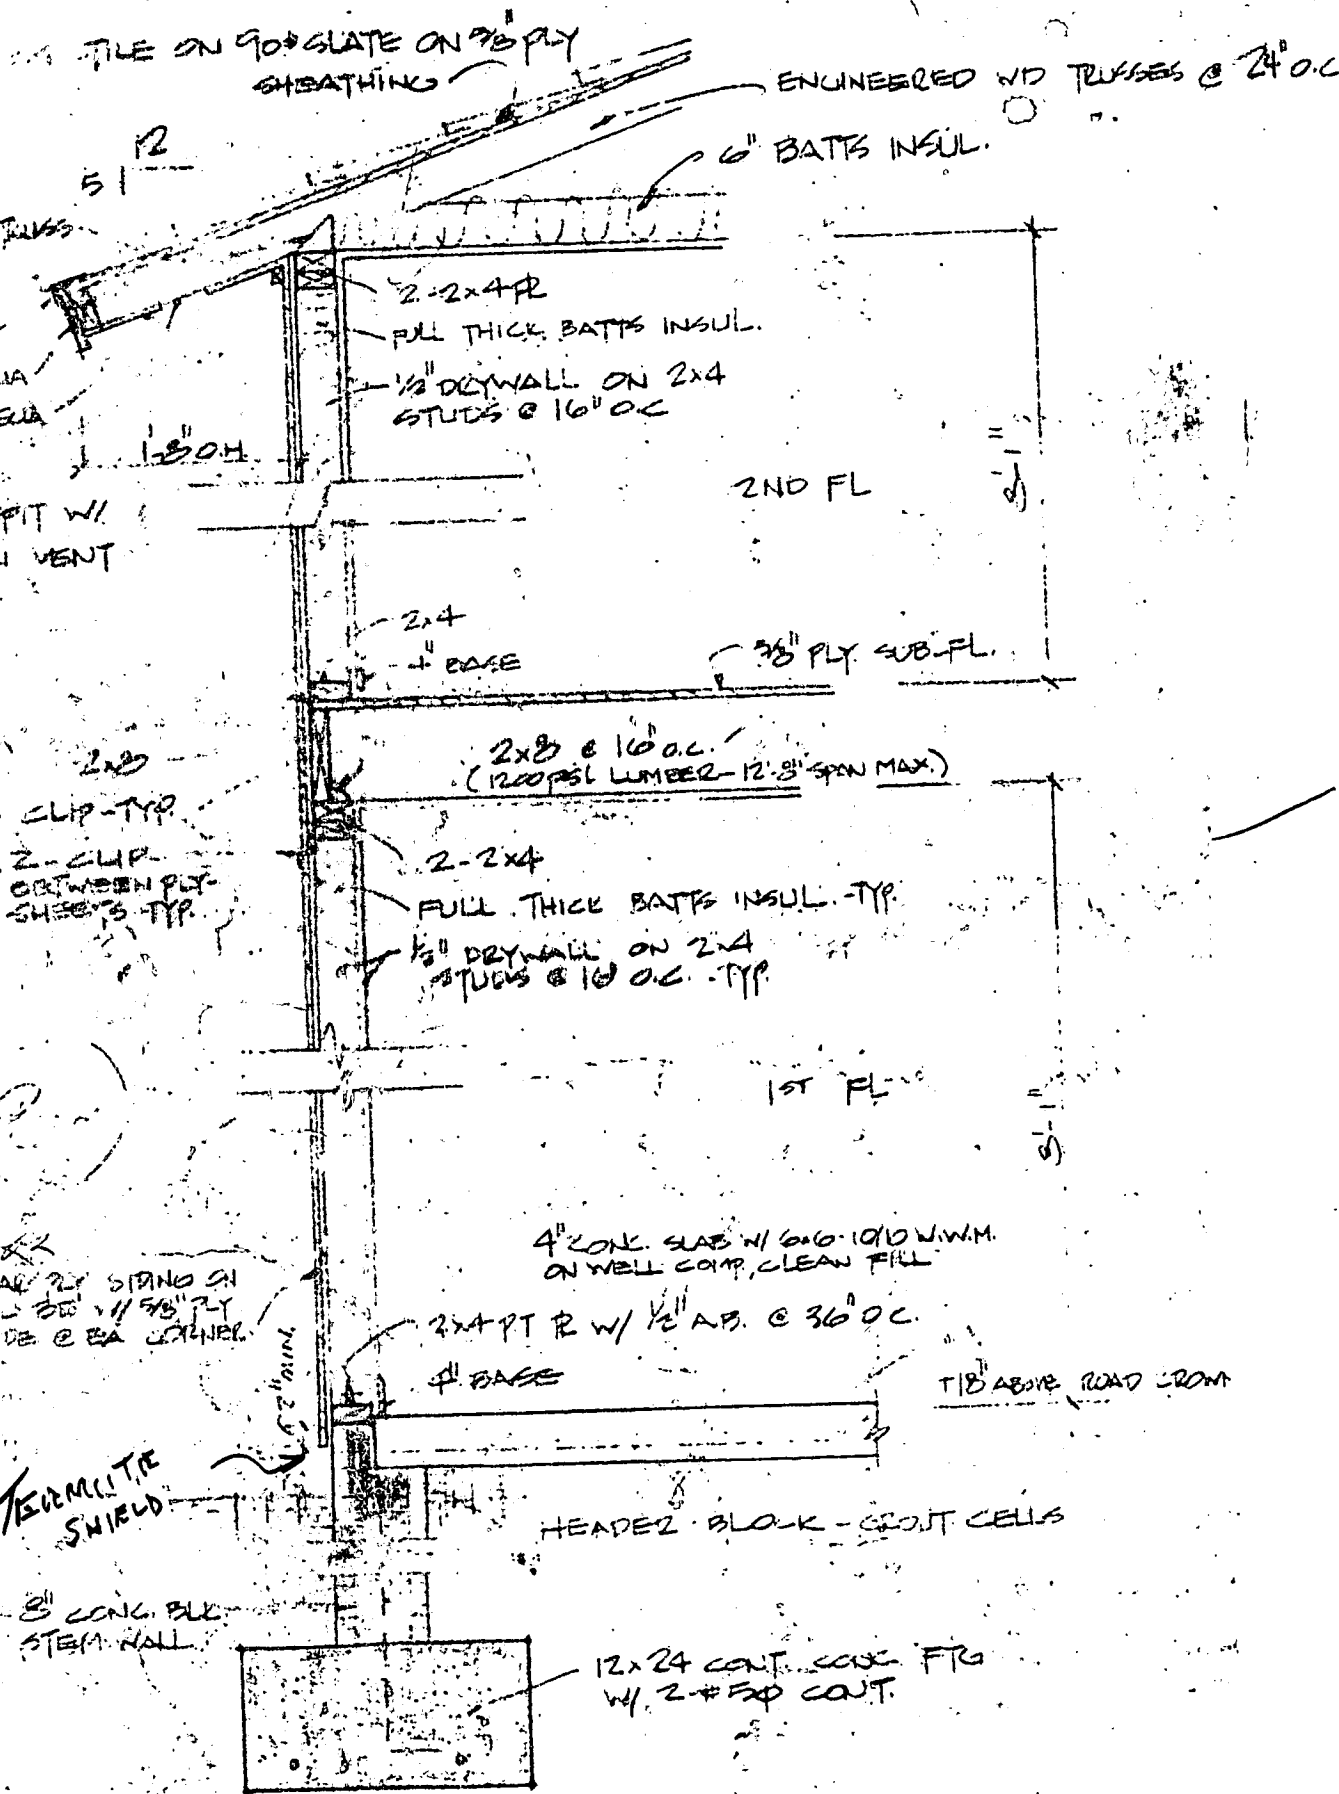 TILE ON 90# SLATE ON 5/8" PLY
SHEATHING
ENGINEERED WD TRUSSES @ 24" O.C
12
5
6" BATTS INSUL.
TRUSS
2-2x4 PL
FULL THICK BATTS INSUL.
1/2" DRYWALL ON 2x4
STUDS @ 16" O.C
1'-8" O.H.
2ND FL
8'-1"
W/
VENT
2x4
4" BASE
5/8" PLY. SUB-FL.
2x8 @ 16" O.C.
(1200 PSI LUMBER-12'-8" SPAN MAX.)
2x8
CLIP-TYP.
Z-CLIP
BETWEEN PLY-
SHEETS-TYP.
2-2x4
FULL THICK BATTS INSUL.-TYP.
1/2" DRYWALL ON 2x4
STUDS @ 16" O.C.-TYP.
1ST FL
8'-1"
4" CONC. SLAB W/ 6x6-10/10 W.W.M.
ON WELL COMP, CLEAN FILL
PLY SIDING ON
W/ 5/8" PLY
@ EA CORNER
2x4 PT PL W/ 1/2" A.B. @ 36" O.C.
4" BASE
18" ABOVE ROAD CROWN
TERMITE
SHIELD
HEADER BLOCK - GROUT CELLS
8" CONC. BLK
STEM WALL
12x24 CONT. CONC. FTG
W/ 2-#5φ CONT.